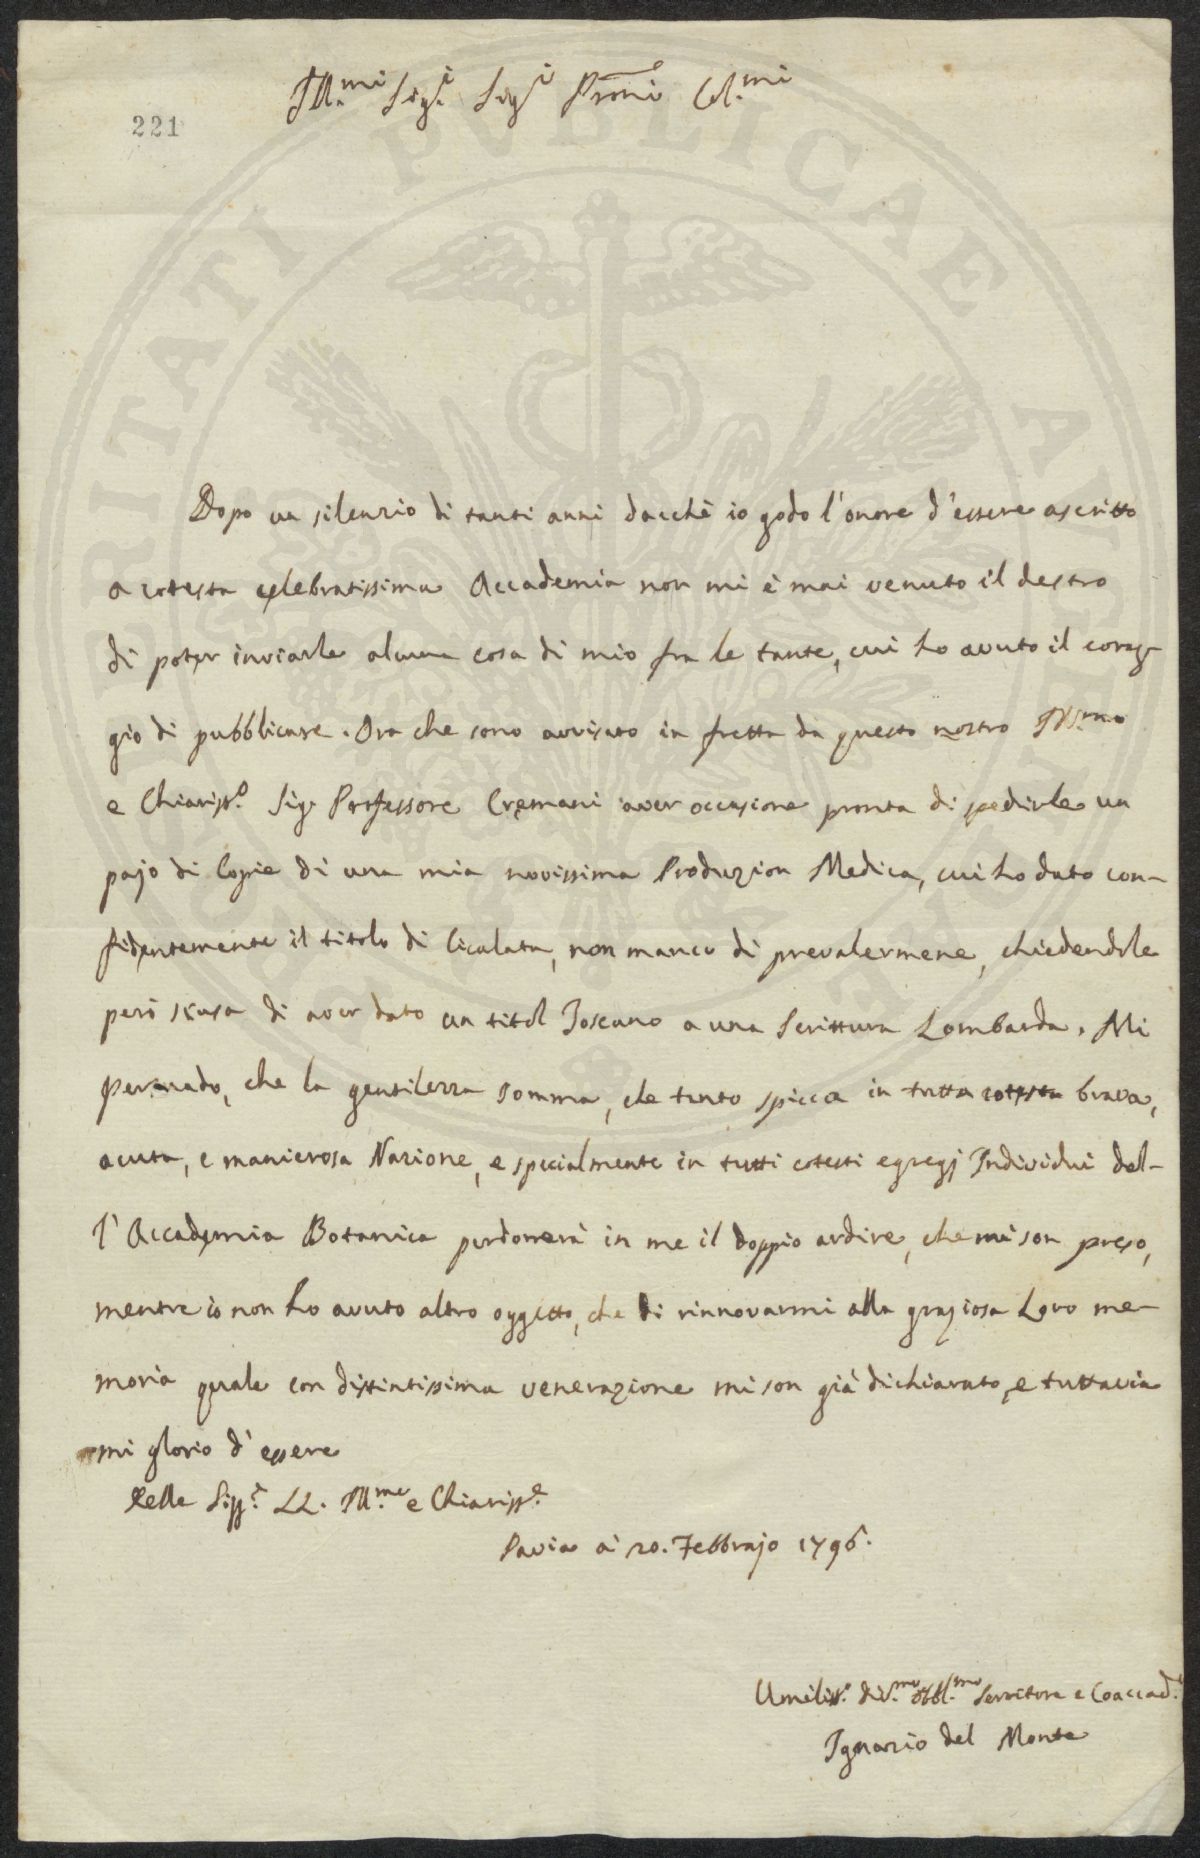 Ill.mi Sig.i Sig.i Proni Col.mi
221
Dopo un silenzio di tanti anni dacchè io godo l'onore d'essere ascritto
a cotesta celebratissima Accademia non mi è mai venuto il destro
di poter inviarle alcuna cosa di mio fra le tante, cui ho avuto il corag-
gio di pubblicare. Ora che sono avvisato in fretta da questo nostro Ill.mo
e Chiariss.o Sig. Professore Cremani aver occasione pronta di spedirle un
pajo di Copie di una mia novissima Produzion Medica, cui ho dato con-
fidentemente il titolo di Cicalata, non manco di prevalermene, chiedendole
però scusa di aver dato un titol Toscano a una Scrittura Lombarda. Mi
persuado, che la gentilezza somma, che tanto spicca in tutta cotesta brava,
acuta, e manierosa Nazione, e specialmente in tutti cotesti egregj Individui del-
l'Accademia Botanica perdonerà in me il doppio ardire, che mi son preso,
mentre io non ho avuto altro oggetto, che di rinnovarmi alla graziosa Loro me-
moria quale con distintissima venerazione mi son già dichiarato, e tuttavia
mi glorio d'essere
Delle Sigg.e LL. Ill.me e Chiariss.e
Pavia a' 20. Febbrajo 1796.
Umiliss.o Div.mo Obbl.mo Servitore e Coaccad.o
Ignazio del Monte
PUBLICAE